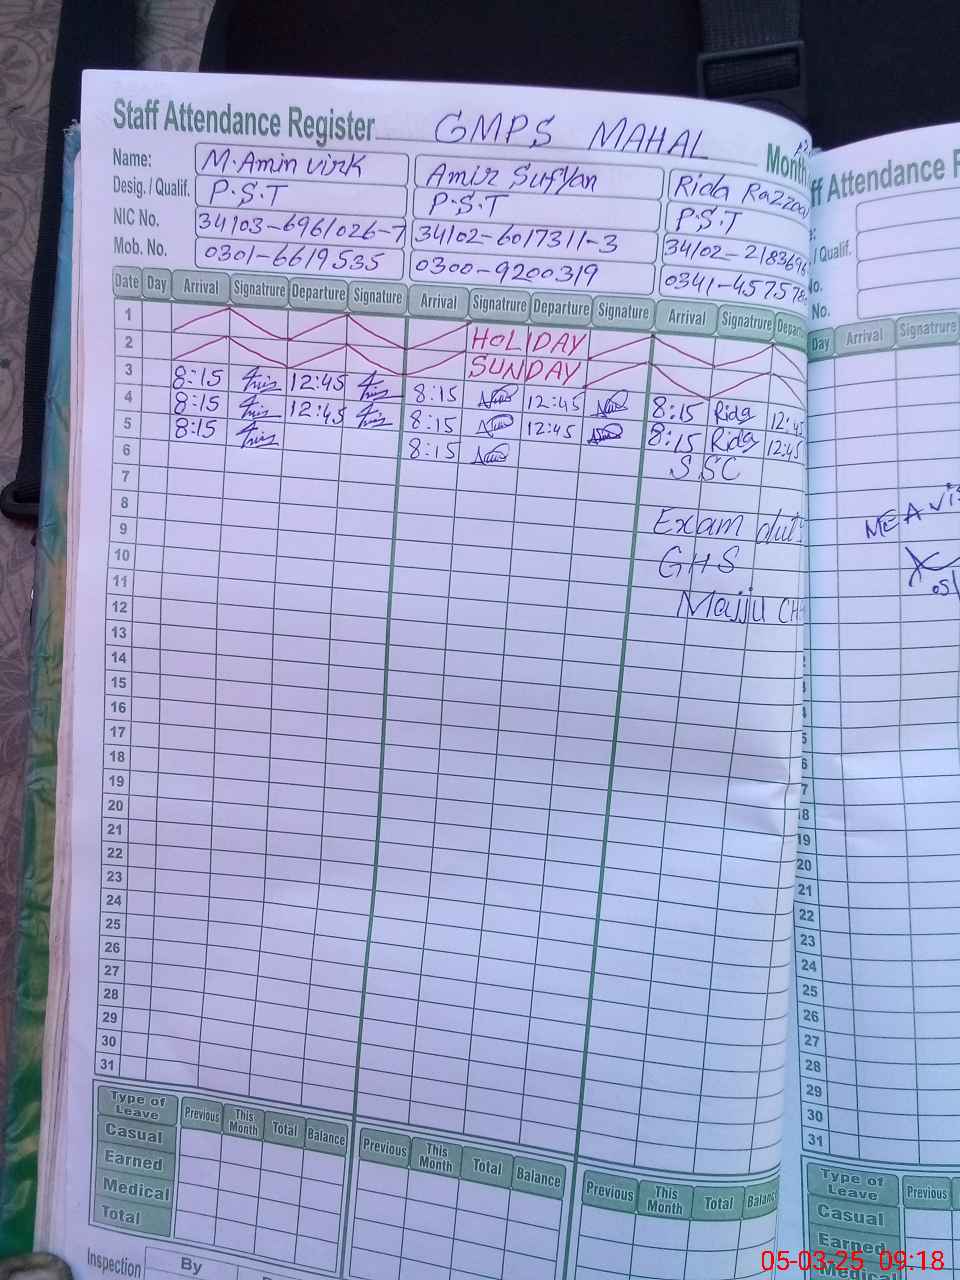 Staff Attendance Register GMPS MAHAL Month
Name: M. Amin Virk Amir Sufyan Rida
Desig. / Qualif. P.S.T P.S.T P.S.T
NIC No. 34103-6961026-7 34102-6017311-3 34102-2183696
Mob. No. 0301-6619535 0300-9200319 0341-457578
Date Day Arrival Signatrure Departure Signature Arrival Signatrure Departure Signature Arrival Signatrure
1
2 HOLIDAY
3 SUNDAY
8:15 12:45 8:15 12:45 8:15 Rida 12:45
4
8:15 12:45 8:15 12:45 8:15 Rida 12:45
5
8:15 8:15 SSC
6
7
8 Exam
9
10 GHS
11
12 Majju
13
14
15
16
17
18
19
20
21
22
23
24
25
26
27
28
29
30
31
Type of Leave Previous This Month Total Balance Previous This Month Total Balance Previous This Month Total
Casual
Earned
Medical
Total
Inspection By
Attendance
Qualif.
No.
No.
Day Arrival Signatrure
MEA
18
19
20
21
22
23
24
25
26
27
28
29
30
31
Type of Leave Previous
Casual
Earned
Medical
05-03-25 09:18